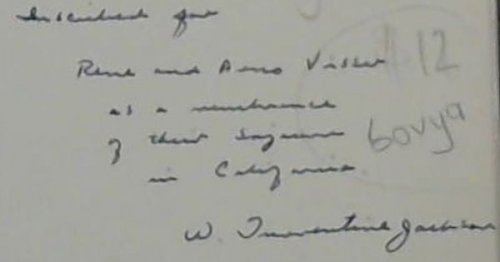 Inscribed for
Rene and Arno Visser
as a remembrance
of their sojourn
in California
W. Turrentine Jackson
12